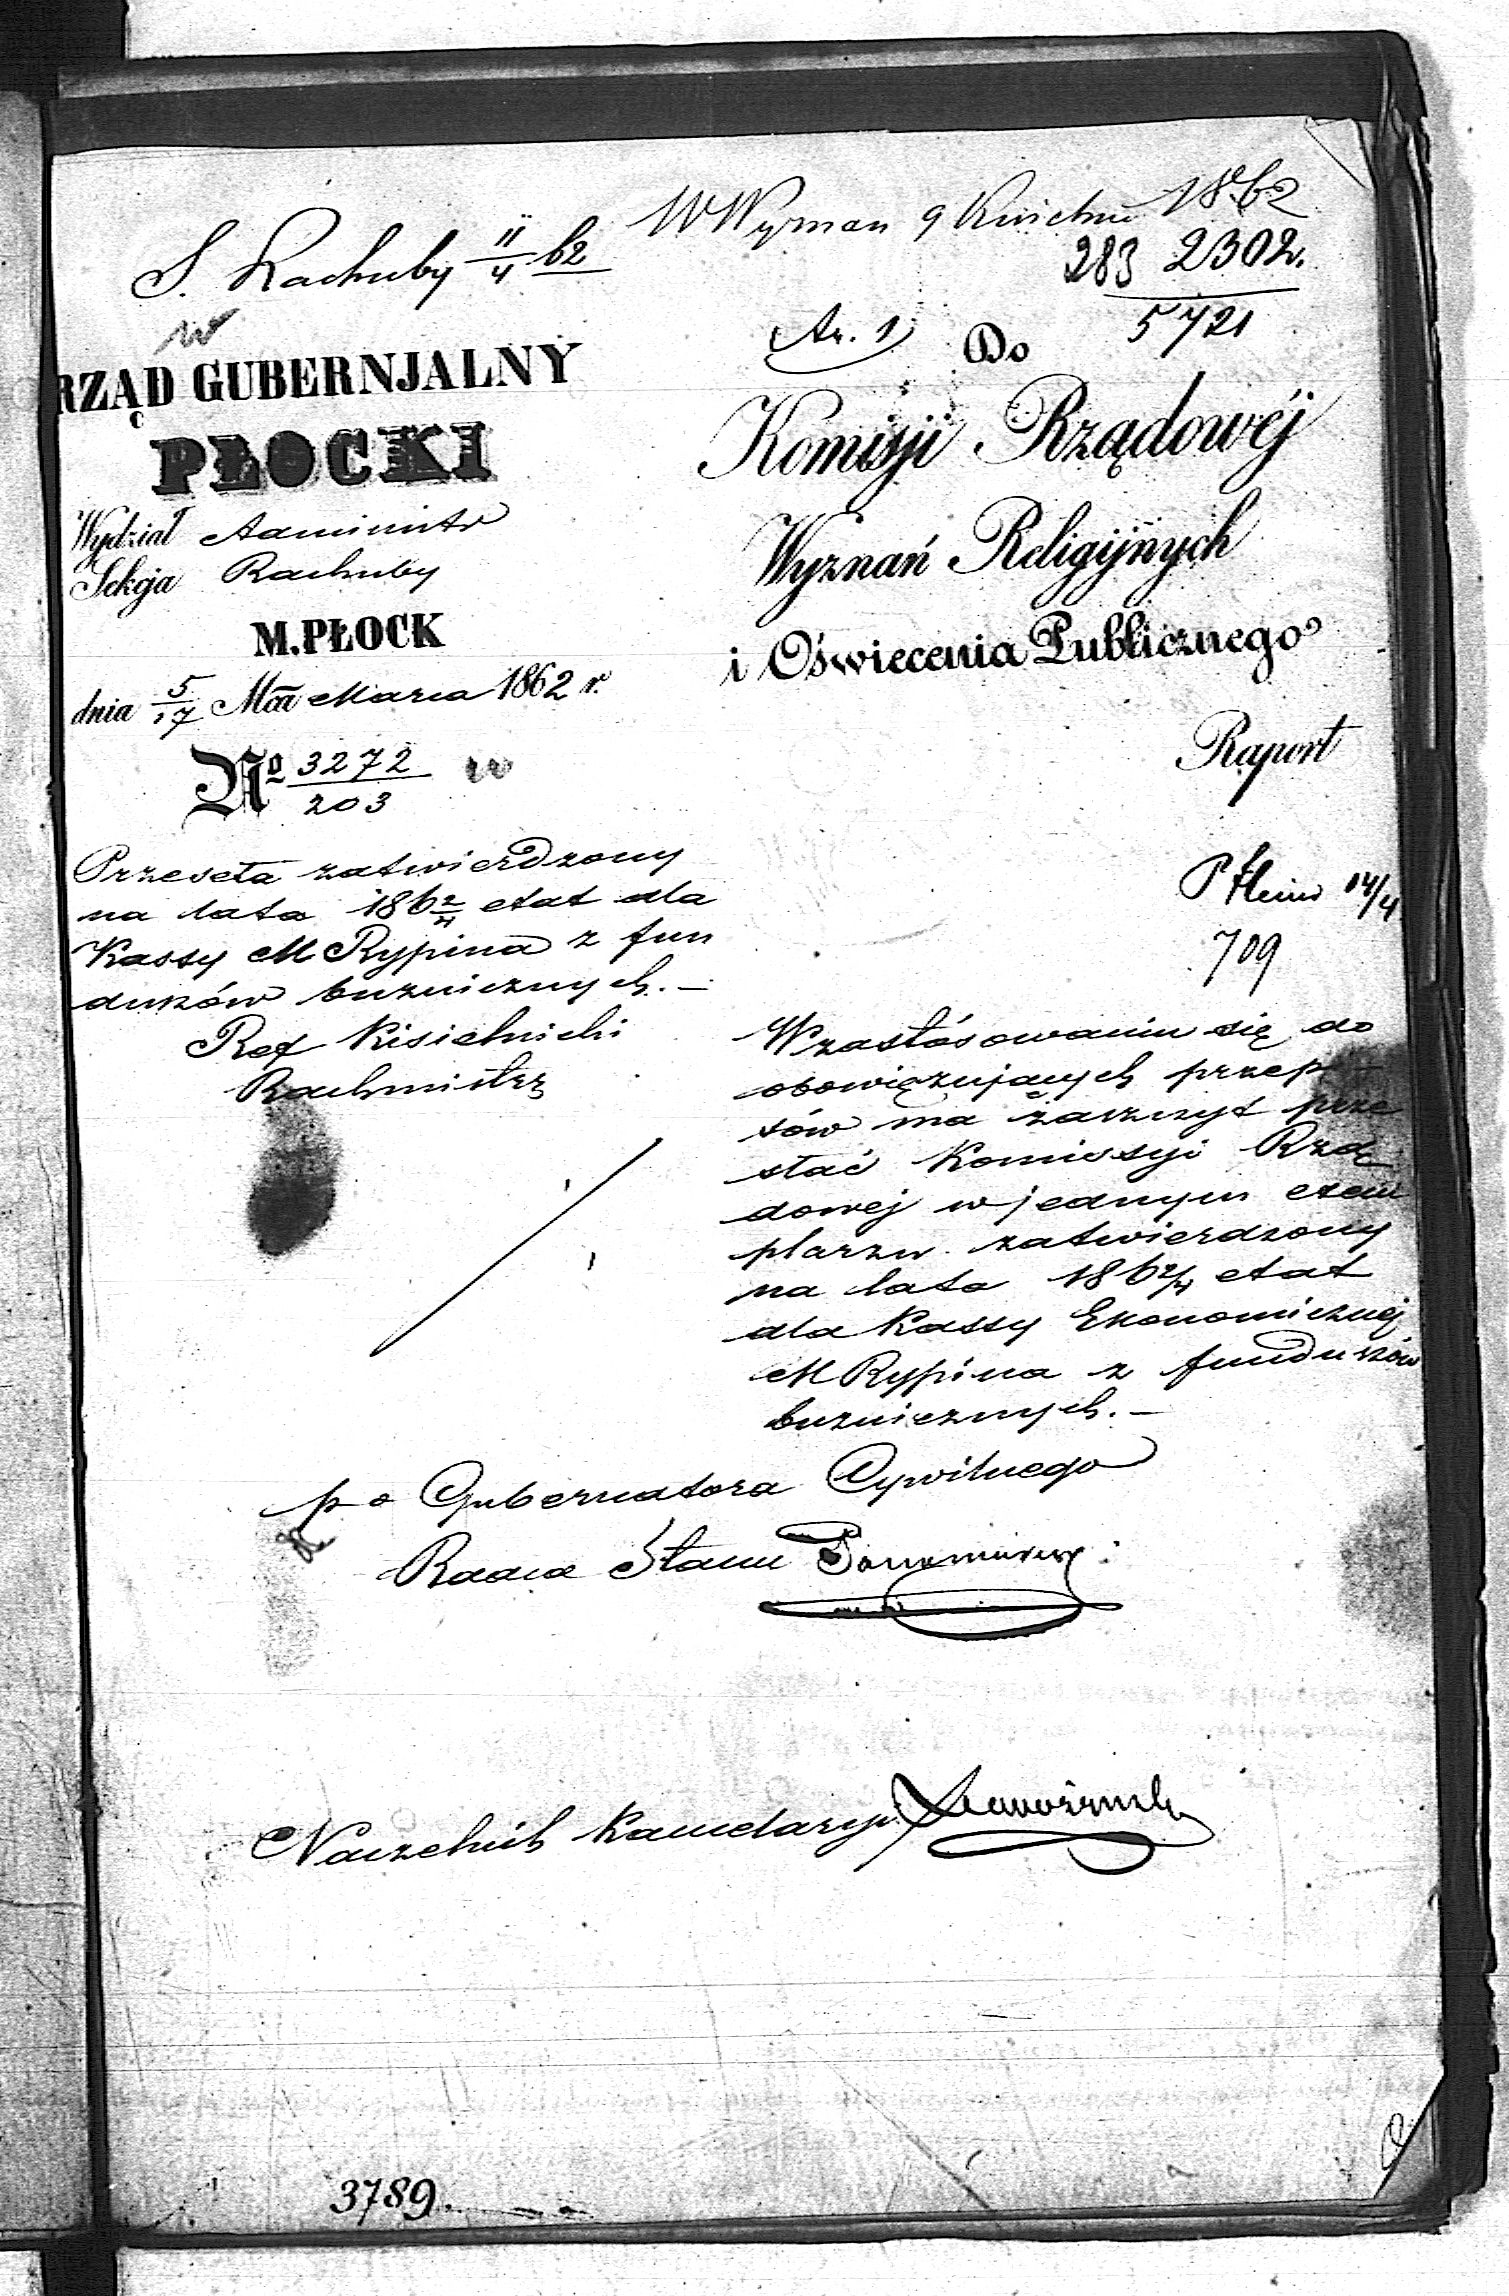 S. Rachuby 11/4 62
W Wyznan 9 Kwietnia 1862
283 2302.
5721
RZĄD GUBERNJALNY
PŁOCKI
Wydział Administr
Sekcja Rachuby
M. PŁOCK
dnia 5/17 Mca Marca 1862 r.
No 3272/203
Przeseła zatwierdzony
na lata 186 2/4 etat dla
Kassy M Rypina z fun
duszów bużnicznych. —
Ref Kisielnicki
Rachmistrz
Do
Komisji Rządowéj
Wyznań Religijnych
i Oświecenia Publicznego
Raport
14/4
709
W zastósowaniu się do
obowięzujących przepi
sów ma zaszczyt prze
słać Komissyi Rzą
dowej w jednym exem
plarzu zatwierdzony
na lata 186 2/4 etat
dla Kassy Ekonomicznej
M Rypina z funduszów
bużnicznych. —
p o Gubernatora Cywilnego
Radca Stanu
Naczelnik Kancelaryi
3789